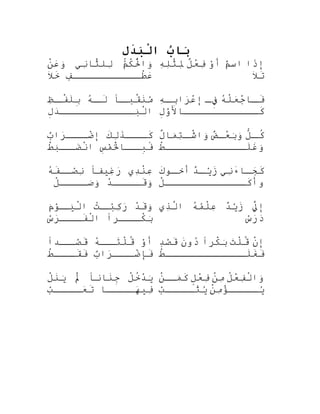 بَابُ الْبَدَلِ
إِذَا اسمٌ أوْ فِعْلٌ لِمِثْلِهِ وَالْحُكْمُ لِلثَّانِي وَعَنْ
تَلاَ عَطْفٍ خَلاَ
فَاجْعَلْهُ فِي إِعْرَابِهِ مُنَقِّباً لَهُ بِلَفْظِ
كَالأَوَّلِ الْبَدَلِ
كُلٌّ وَبَعْضٌ وَاشْتِمَالٌ كَذَلِكَ إِضْرَابٌ
وَغَلَطْ فَبِالْخَمْسِ انْضَبَطْ
كَجَاءَنِي زَيْدٌ أخُوكَ عِنْدِي رَغِيفاً نِصْفَهُ
وأَكَلْ وَقَدْ وَصَلْ
إِلَيَّ زَيْدٌ عِلْمُهُ الَّذِي وَقَدْ رَكِبْتُ الْيَوْمَ
دَرَسْ بَكْراً الْفَرَسْ
إِنْ قُلْتَ بَكْراً دُونَ قَصْدٍ أوْ قُلْتَهُ قَصْداً
فَغَلَطْ فَإِضْرَابٌ فَقَطْ
وَالْفِعْلُ مِنْ فِعْلٍ كَمَنْ يَدْخُلْ جِنَاناً لَمْ يَنَلْ
يُؤْمِنْ يُثَبْ فِيهَا تَعَبْ